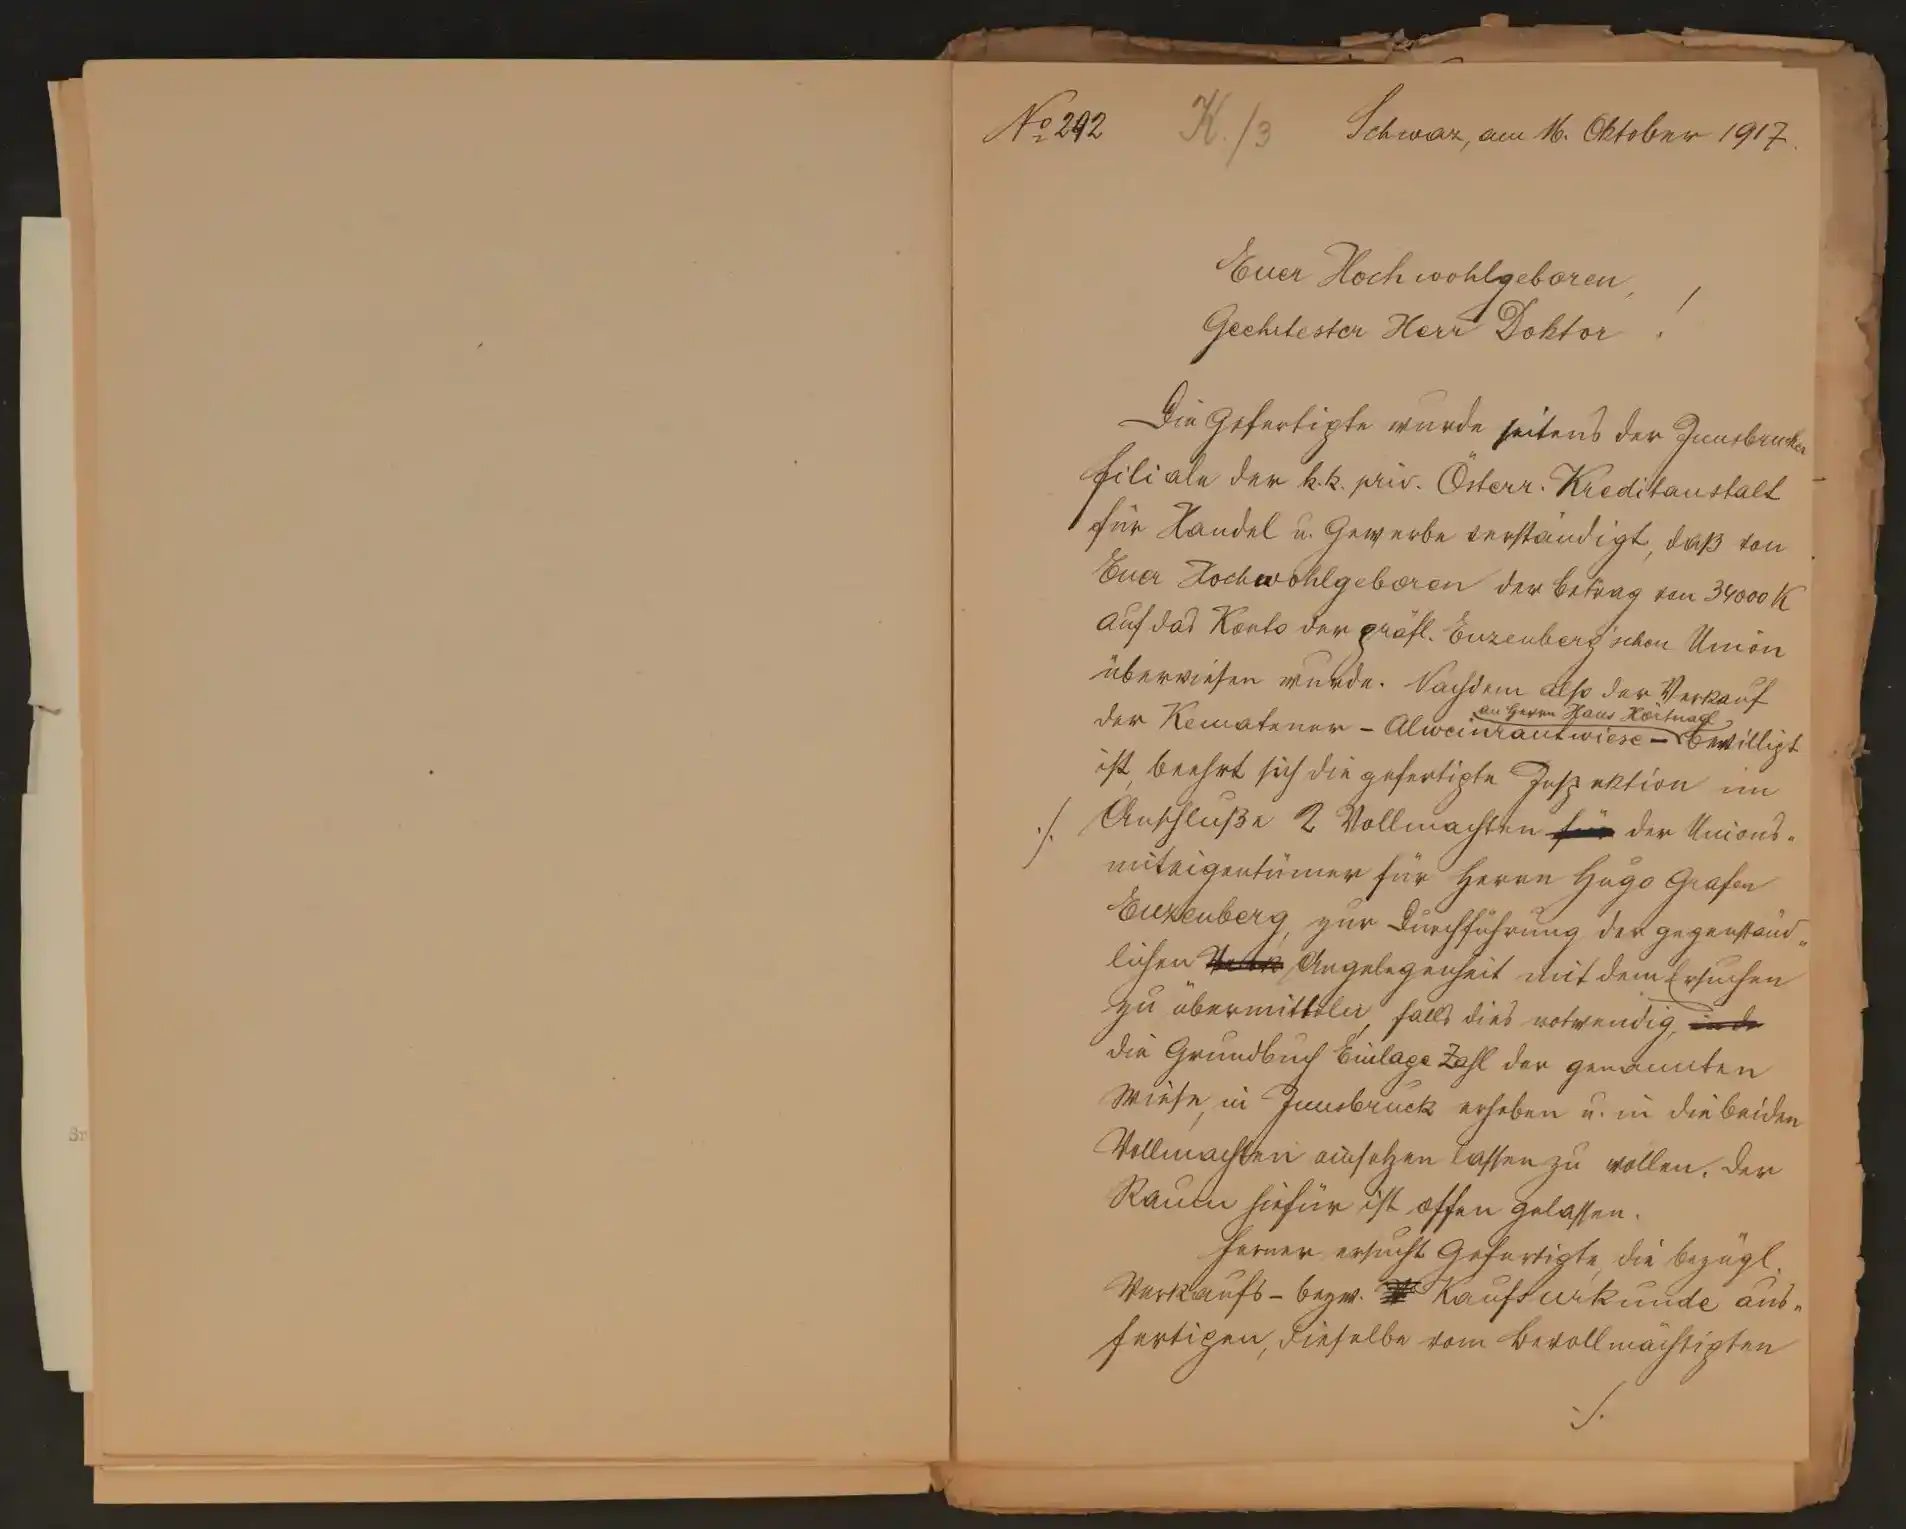 No 292 K./3 Schwaz, am 16. Oktober 1917.
Euer Hochwohlgeboren,
Geehrtester Herr Doktor !
Die Gefertigte wurde seitens der Innsbrucker
Filiale der k.k. priv. Österr. Kreditanstalt
für Handel u. Gewerbe verständigt, daß von
Euer Hochwohlgeboren der Betrag von 34000 K
auf das Konto der gräfl. Enzenberg'schen Union
überwiesen wurde. Nachdem also der Verkauf
an Herrn Hans Hörtnagl
der Kematener - Alweinrautwiese - bewilligt
ist, beehrt sich die gefertigte Inspektion im
./. Anschluße 2 Vollmachten für der Unions-
miteigentümer für Herrn Hugo Grafen
Enzenberg, zur Durchführung der gegenständ-
lichen Angelegenheit mit dem Ersuchen
zu übermitteln, falls dies notwendig,
die Grundbuch Einlage Zahl der genannten
Wiese, in Innsbruck erheben u. in die beiden
Vollmachten einsetzen lassen zu wollen. Der
Raum hiefür ist offen gelassen.
Ferner ersucht Gefertigte, die bezügl.
Verkaufs- bezw. Kaufsurkunde aus-
fertigen, dieselbe vom Bevollmächtigten
./.